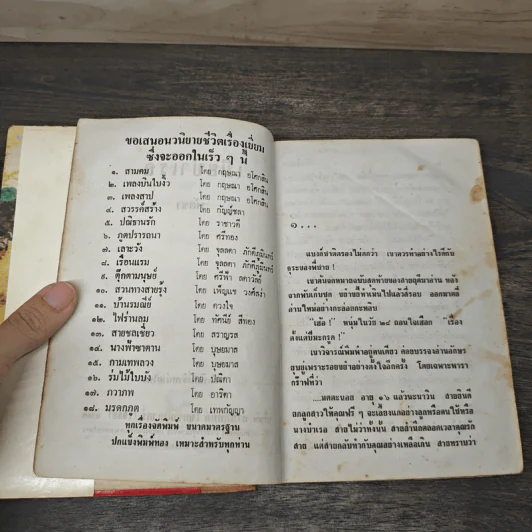 ขอเสนอนวนิยายชีวิตเรื่องเยี่ยม
ซึ่งจะออกในเร็ว ๆ นี้
๑. สามคม โดย กฤษณา อโศกสิน
๒. เพลงบินใบงิ้ว โดย กฤษณา อโศกสิน
๓. เพลงสาป โดย กฤษณา อโศกสิน
๔. สวรรค์สร้าง โดย กัญญ์ชลา
๕. ปณิธานรัก โดย ราชาวดี
๖. ภูตปรารถนา โดย ตรีทอง
๗. เลาะวัง โดย จุลลดา ภักดีภูมินทร์
๘. เรือนแรม โดย จุลลดา ภักดีภูมินทร์
๙. ตุ๊กตามนุษย์ โดย ศรีฟ้า ลดาวัลย์
๑๐. สวนทางสายรุ้ง โดย เพ็ญแข วงศ์สง่า
๑๑. บ้านรมณีย์ โดย ดวงใจ
๑๒. ไฟร่านลม โดย ทัศนีย์ สีทอง
๑๓. สายชลเชี่ยว โดย สราญรส
๑๔. นางฟ้าซาตาน โดย บุษยมาส
๑๕. กามเทพลวง โดย บุษยมาส
๑๖. ร่มไม้ใบบัง โดย ปณิตา
๑๗. ภวาภพ โดย อาริตา
๑๘. มรดกภูต โดย เทพกัญญา
ทุกเรื่องจัดพิมพ์ ขนาดมาตรฐาน
ปกแข็งพิมพ์ทอง เหมาะสำหรับทุกท่าน
๑...
แบงก์ชาติตรองไม่ตกว่า เขาควรทำอย่างไรดีกับ
ธุระของพี่ชาย !
เขาค้นจดหมายฉบับสุดท้ายของสายฤดีมาอ่าน หลัง
จากพับเก็บชุด ขยายขี้หน้าเมินไปแล้วครู่
อ่านใหม่อย่างกะล่อยกะหลอ
"เฮ้อ !" หนุ่มในวัย ๒๔ ถอนใจเฮือก เรื่อง
ตั้งแต่ปีมะกรูด !
เขาวิจารณ์พึมพำอยู่คนเดียว ค่อยบรรจงอ่านอักษร
ขยุยิบเพราะระยะย่ำอย่างตั้งใจอีกครั้ง โดยเฉพาะพารา
กร๊าฟที่ว่า
....นตตะนอย อายุ ๑๖ แล้วนะนาวิน สายยินดี
ยกลูกสาวให้คุณฟรี ๆ จะเลี้ยงแกอย่างลูกหรือคนใช้หรือ
นางบำเรอ สายไม่ว่าทั้งนั้น สายสำนึกตลอดเวลาคุณรัก
สาย แต่สายกลับทำกับคุณอย่างเหลือเกิน สายทราบว่า